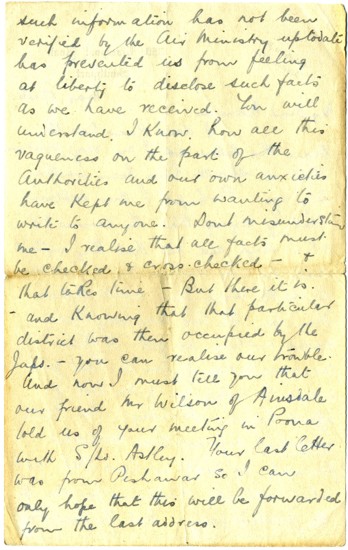 such information has not been
verified by the Air Ministry uptodate
has prevented us from feeling
at liberty to disclose such facts
as we have received. You will
understand, I know, how all this
vagueness on the part of the
Authorities and our own anxieties
have kept me from wanting to
write to anyone. Dont misunderstand
me - I realise that all facts must
be checked & cross-checked - &
that takes time - But there it is.
- and knowing that that particular
district was then occupied by the
Japs. - you can realise our trouble.
And now I must tell you that
our friend Mr Wilson of Ainsdale
told us of your meeting in Poona
with S/Ldr. Astley. Your last letter
was from Peshawar so I can
only hope that this will be forwarded
from the last address.